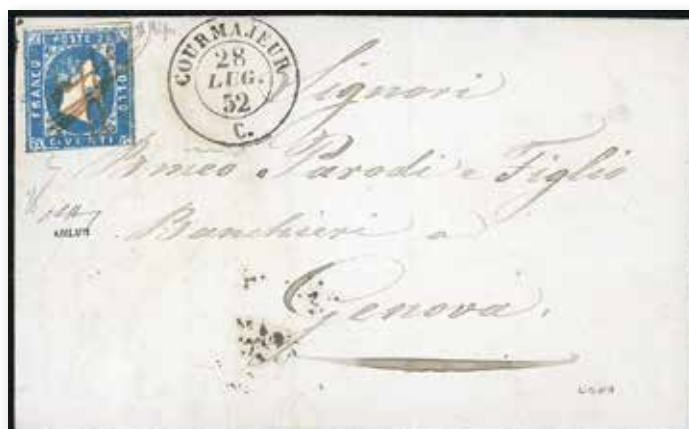 FRANCO POSTE 20 BOLLO
C.VENTI
COURMAJEUR
28
LUG.
52
C.
Signori
Parodi e Figlio
Banchieri a
Genova.